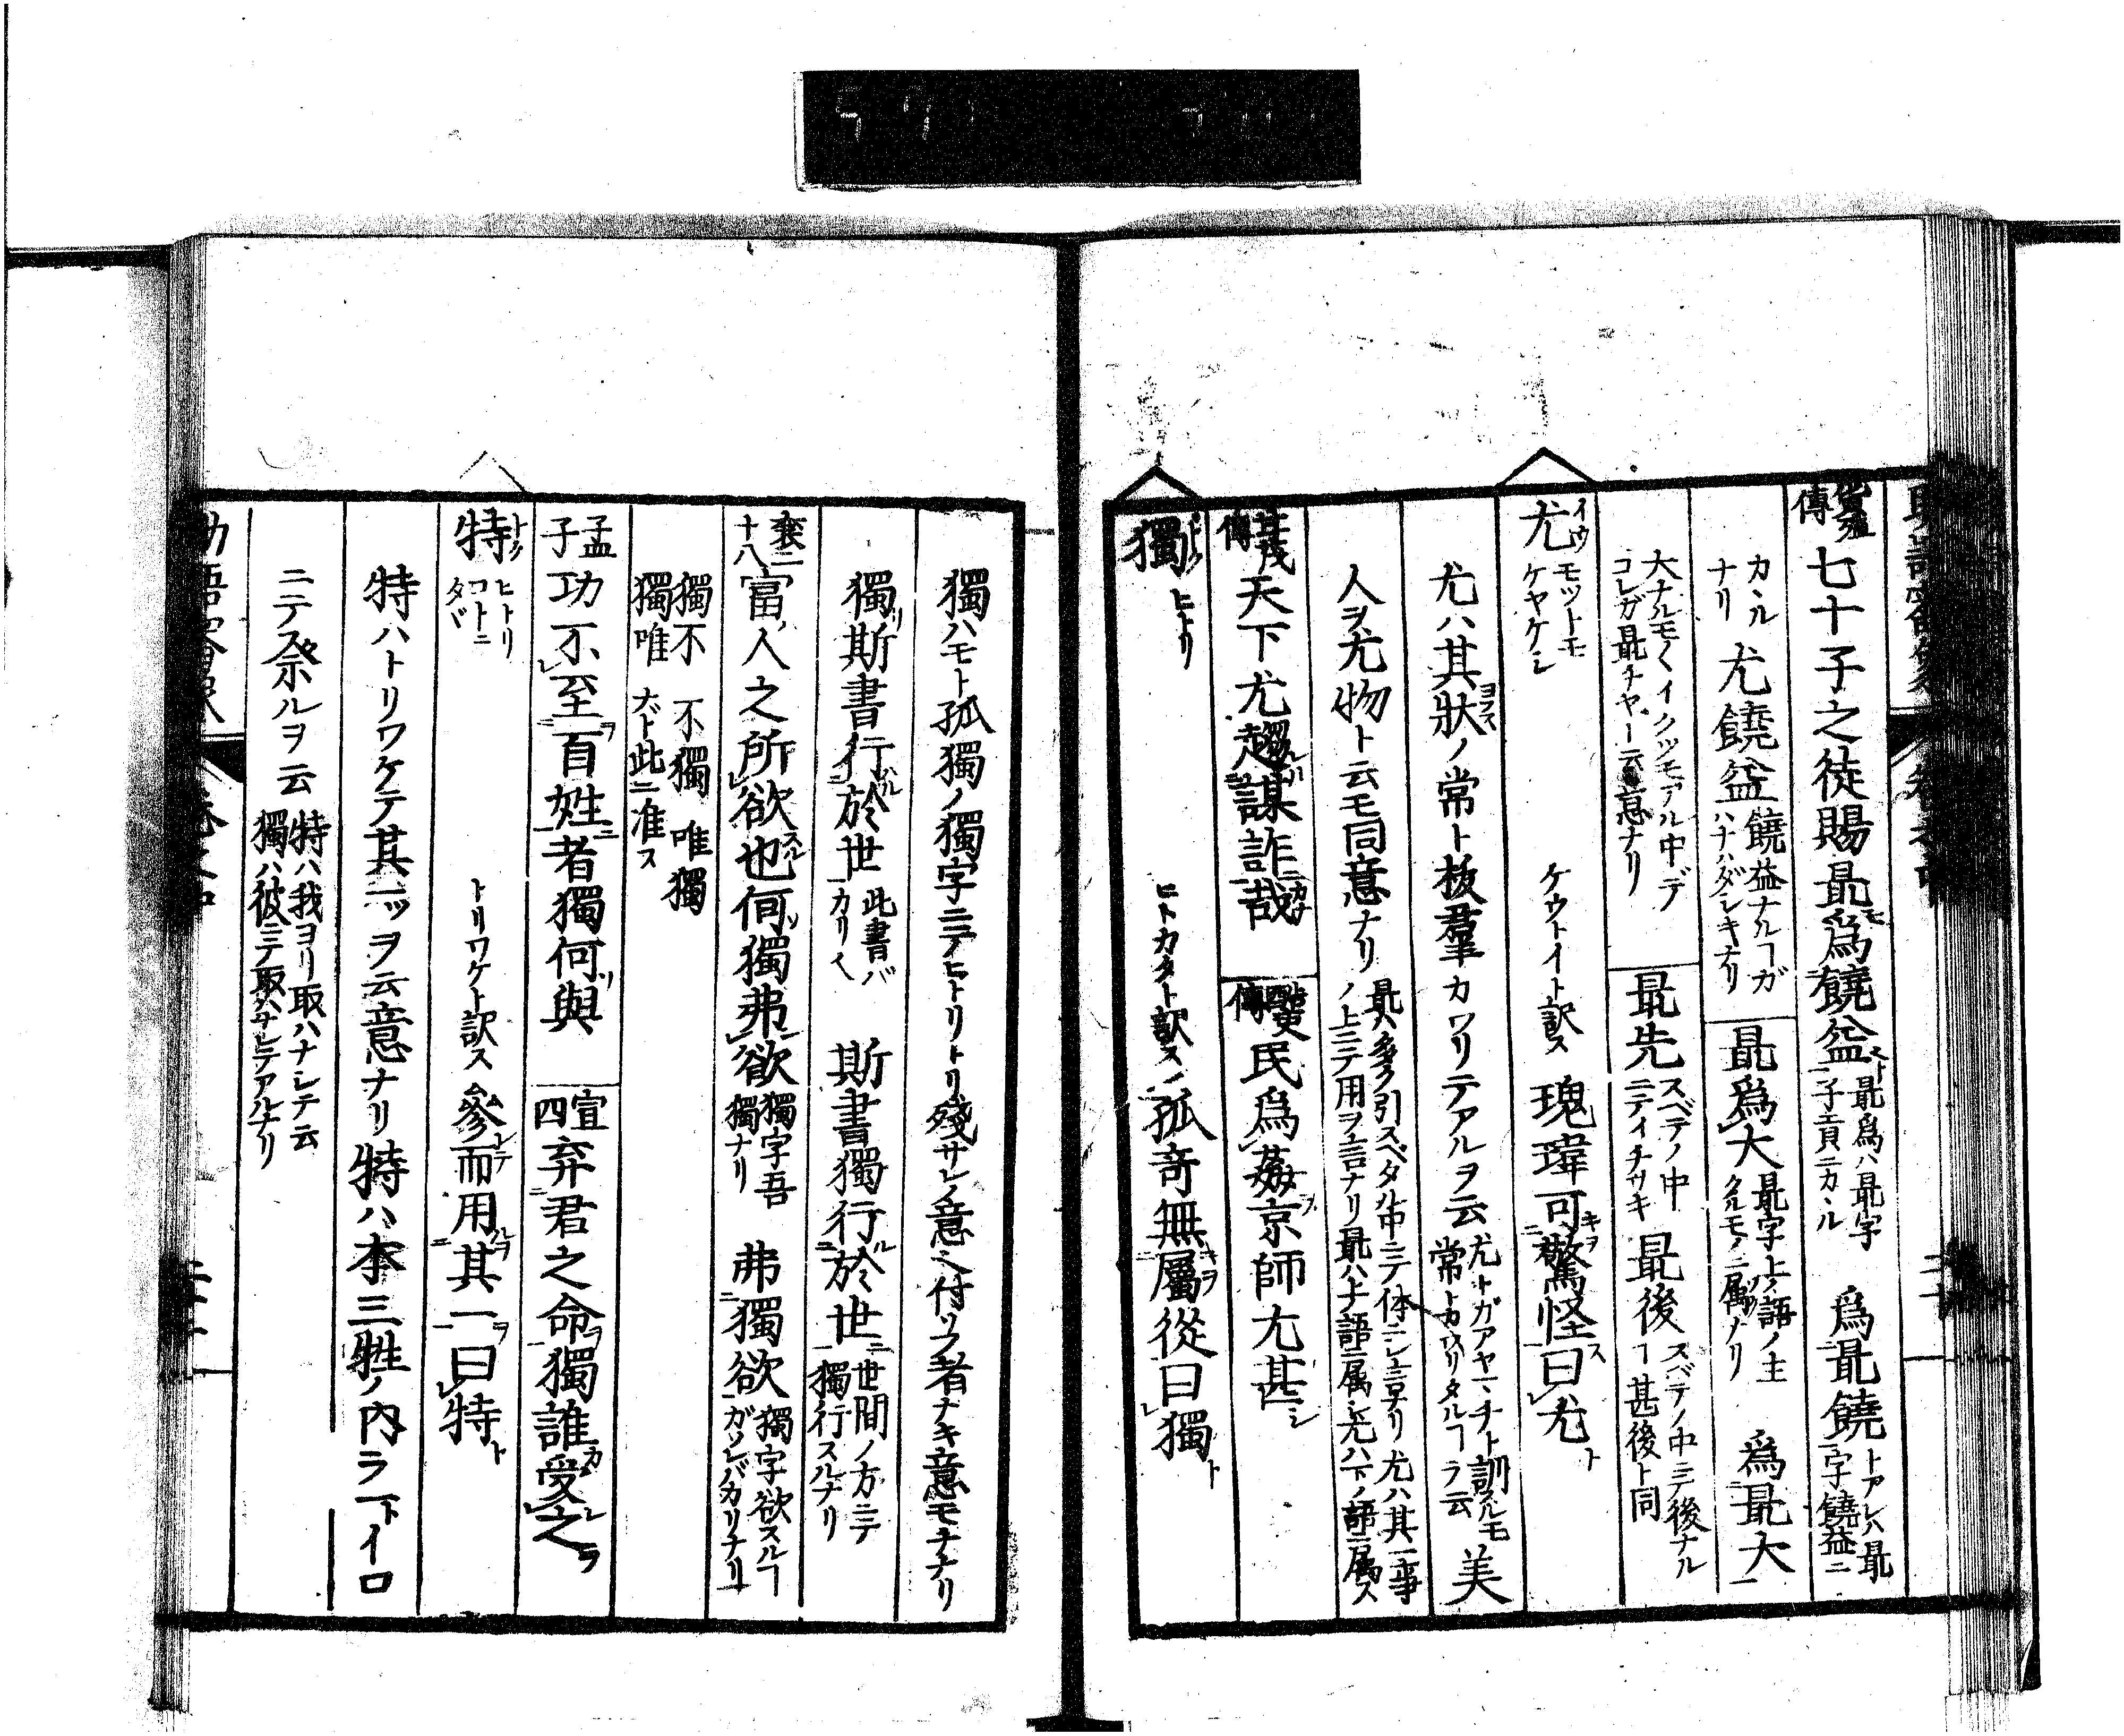 貨殖傳 七十子之徒賜最爲饒益 最爲ハ最字子貢ニカヽル 爲最饒 トアレハ最字饒益ニ
カヽルナリ 尤饒益 饒益ナルヿガハナハダシキナリ 最爲大 最字上ノ語ノ主タルモノニ属ソナリ 爲最大
大ナルモノイクツモアル中デコレガ最チヤト云意ナリ 最先 スベテノ中ニテイチサキ 最後 スベテノ中ニテ後ナルヿ甚後ト同
尤 イウ モツトモ ケヤケシ ケウトイト訳ス 瑰瑋可驚怪曰尤
尤ハ其狀ノ常ト抜羣カワリテアルヲ云 尤トガアヤマチト訓スルモ常トカワリタルヿヲ云 美
人ヲ尤物ト云モ同意ナリ 最ハ多ク引スベタル中ニテ体ニシ言ナリ尤ハ其一事ノ上ニテ用ヲ言ナリ最ハ上ノ語ニ属シ尤ハ下ノ語ニ属ス
甘茂傳 天下尤趨謀詐哉 民爲姦京師尤甚
獨 ヒトリ ヒトカタト訳ス 孤奇無屬從曰獨
獨ハモト孤獨ノ獨字ニテヒトリトリ殘サレノ意之付ソフ者ナキ意モチナリ
獨斯書行於世 此書バカリ 斯書獨行於世 世間ノ方ニテ獨行スルナリ
襄二十八 富人之所欲也何獨弗欲 獨字吾獨ナリ 弗獨欲 獨字欲スルヿガソレバカリナリ
獨不 不獨 唯獨 獨唯 ナド此ニ准ス
孟子 功不至百姓者獨何與 宣四 弃君之命獨誰受之
特 トク ヒトリ コトニ タヾ トリワケト訳ス 參而用其一曰特
特ハトリワケテ其一ツヲ云意ナリ特ハ本三牲ノ内ヲ一トイロ
ニテ祭ルヲ云 特ハ我ヨリ取ハナレテ云獨ハ彼ニテ取ハナレテアルナリ